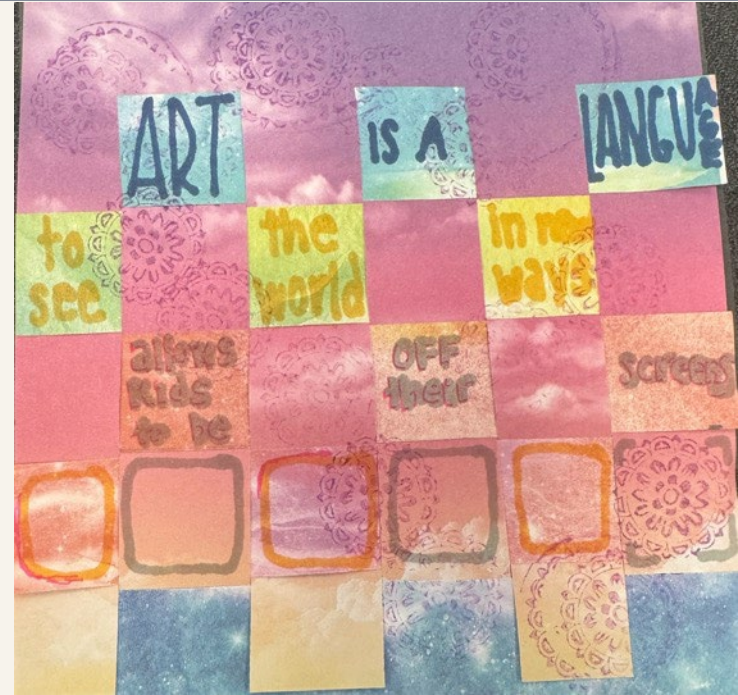 ART IS A LANGUAGE
to see the world in new ways
allows kids to be OFF their screens